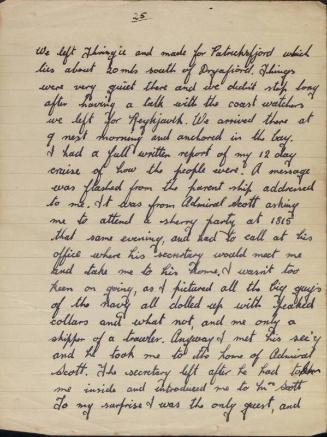 25
We left Thingie and made for Patrickfjord which
lies about 20 mls south of Dryafiord. Things
were very quiet there and we didn't stop long
after having a talk with the coast watchers
we left for Reykjavik. We arrived there at
9 next morning and anchored in the bay.
I had a full written report of my 12 day
cruise of how the people were. A message
was flashed from the parent ship addressed
to me. It was from Admiral Scott asking
me to attend a sherry party at 1815
that same evening, and had to call at his
office where his secretary would meet me
and take me to his home. I wasn't too
keen on going, as I pictured all the big guys
of the navy all dolled up with peaked
collars and what not, and me only a
skipper of a trawler. Anyway I met his sec'y
and he took me to the home of Admiral
Scott. The secretary left after he had taken
me inside and introduced me to Mrs Scott
To my surprise I was the only guest, and